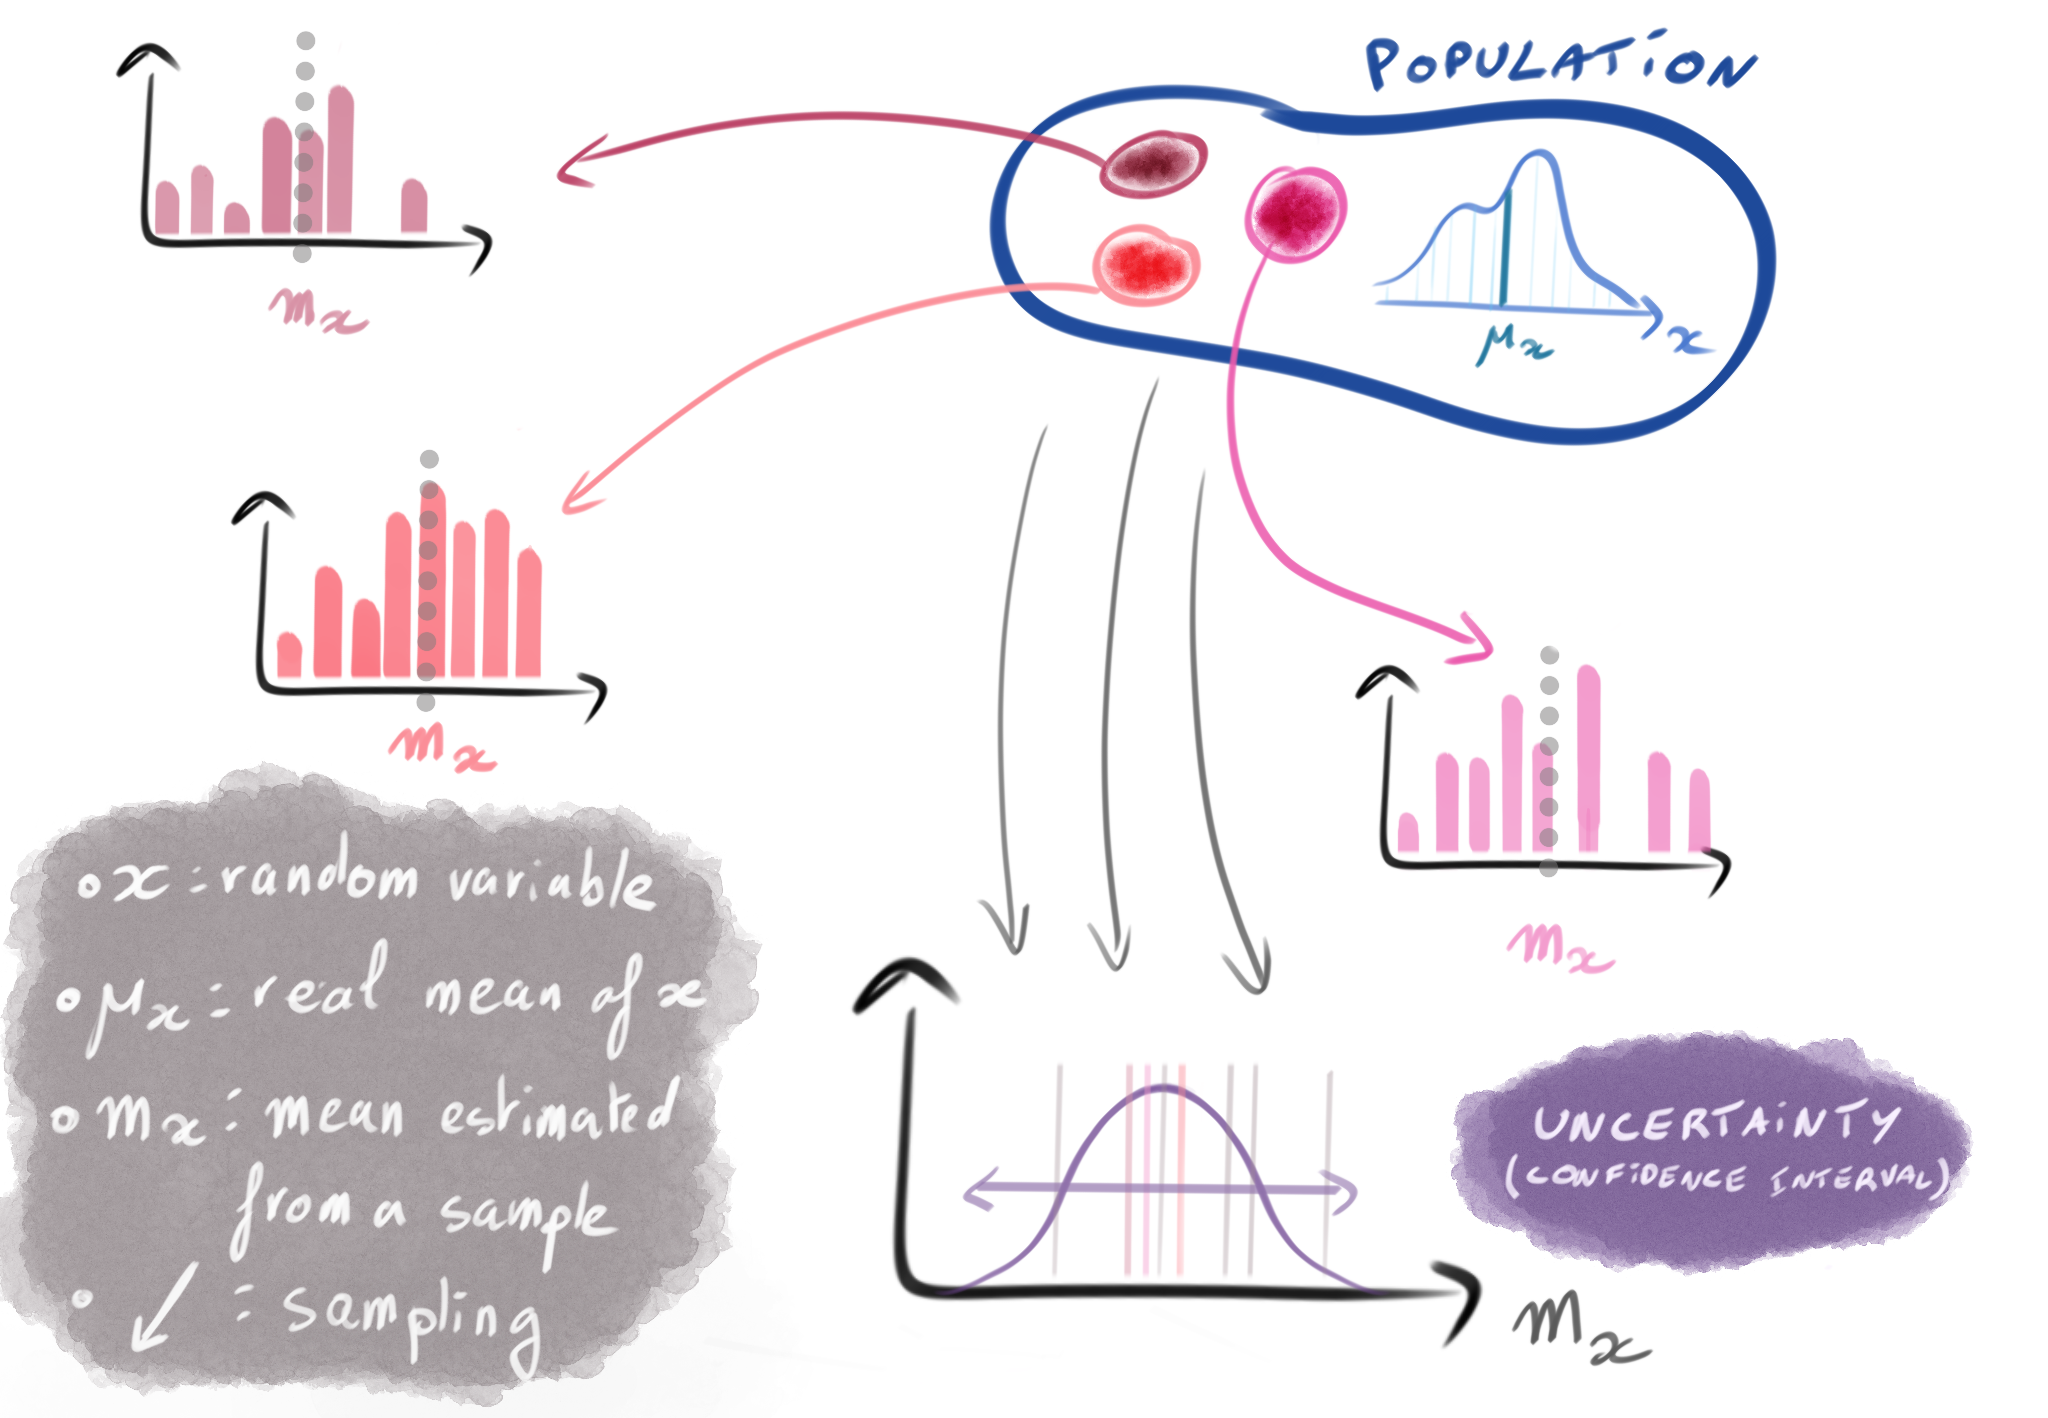 POPULATION
mx
μx
x
mx
mx
• x : random variable
• μx : real mean of x
• mx : mean estimated
from a sample
• ↙ : sampling
UNCERTAINTY
(CONFIDENCE INTERVAL)
mx